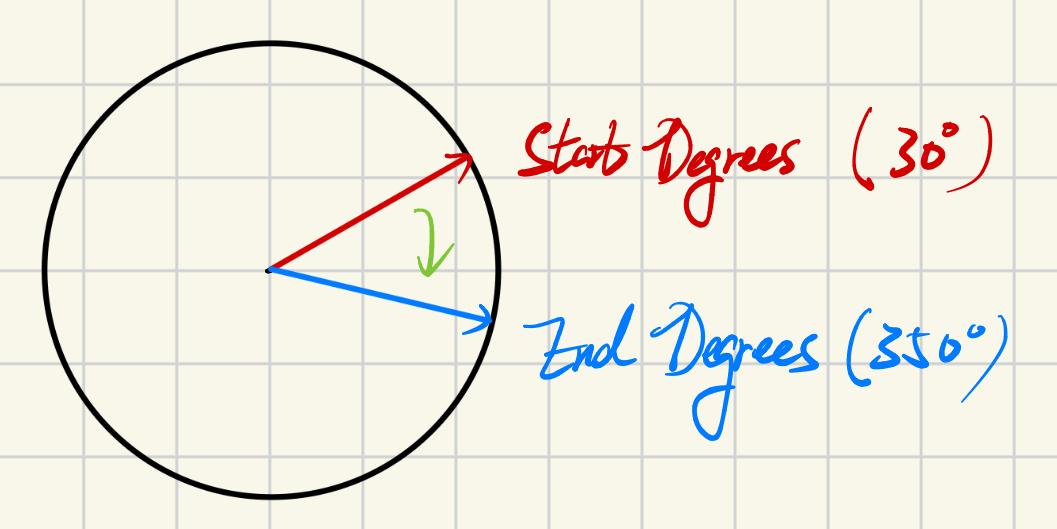 Starts Degrees (30°)
End Degrees (350°)